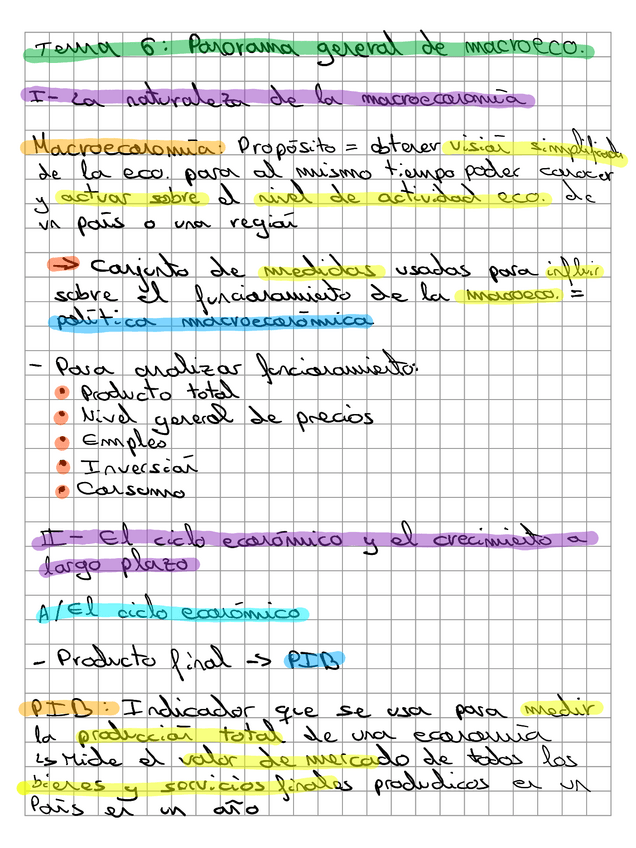 Tema 6: Panorama general de macroeco.
I- La naturaleza de la macroeconomía
Macroeconomía: Propósito = obtener visión simplificada
de la eco. para al mismo tiempo poder conocer
y actuar sobre el nivel de actividad eco. de
un país o una región
→ Conjunto de medidas usadas para influir
sobre el funcionamiento de la macroeco. =
política macroeconómica
- Para analizar funcionamiento:
• Producto total
• Nivel general de precios
• Empleo
• Inversión
• Consumo
II- El ciclo económico y el crecimiento a
largo plazo
A/ El ciclo económico
- Producto final -> PIB
PIB: Indicador que se usa para medir
la producción total de una economía
↳ Mide el valor de mercado de todos los
bienes y servicios finales produdicos en un
País en un año